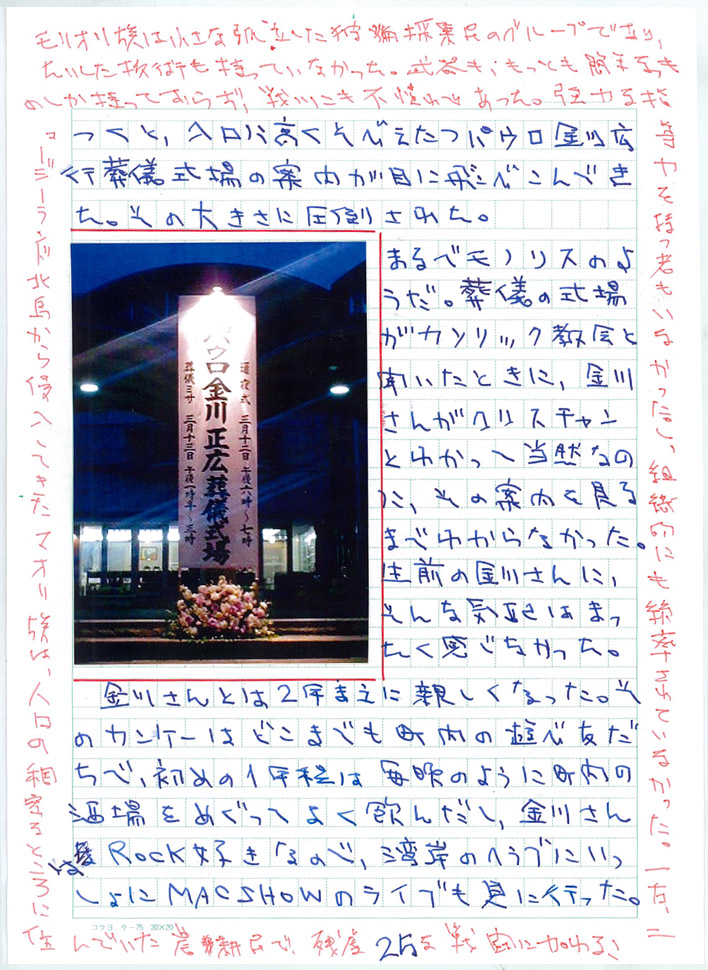 モリオリ族は小さな孤立した狩猟採集民のグループであり、
たいした技術も持っていなかった。武器も、もっとも簡単なも
のしか持っておらず、戦いにも不慣れであった。強力な指
導力を持つ者もいなかったし、組織的にも統率されていなかった。一方、ニ
ュージーランド北島から侵入してきたマオリ族は、人口の稠密なところに住
んでいた農耕民で、残虐な戦闘に加わる、
つくと、入口に高くそびえたつパウロ金川広
行葬儀式場の案内が目に飛びこんでき
た。その大きさに圧倒された。
まるでモノリスのよ
うだ。葬儀の式場
がカソリック教会と
聞いたときに、金川
さんがクリスチャン
とわかって当然なの
に、その案内を見る
までわからなかった。
生前の金川さんに、
そんな気配はまっ
たく感じなかった。
パウロ金川正広葬儀式場
通夜式 三月十二日 午後六時〜七時
葬儀ミサ 三月十三日 午後一時半〜三時
金川さんとは2年まえに親しくなった。そ
のカンケーはどこまでも町内の遊び友だ
ちで、初めの1年程は毎晩のように町内の
酒場をめぐってよく飲んだし、金川さん
はROCK好きなので、湾岸のクラブにいっ
しょにMACSHOWのライブも見に行った。
コクヨ ケ-75 20×20